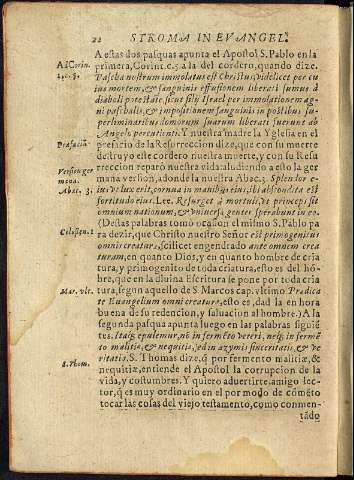 22 STROMA IN EVANGEL.
A estas dos pasquas apunta el Apostol S. Pablo en la
Ad Corin. primera, Corint. c. 5. a la del cordero, quando dize.
Pascha nostrum immolatus est Christus, videlicet per cu
ius mortem, & sanguinis effusionem liberati sumus à
diaboli potestate sicut filij Israel per immolationem ag
ni paschalis, & impositionem sanguinis in postibus su-
perliminaribus domorum suarum liberati fuerunt ab
Angelo percutienti. Y nuestra madre la Yglesia en el
Prefaciũ. prefacio de la Resurreccion dize, que con su muerte
destruyo este cordero nuestra muerte, y con su Resu
rreccion reparó nuestra vida: aludiendo a esto la ger
mana version, adonde la nuestra Abac. 3. Splendor e-
Abac. 3. ius vt lux erit, cornua in manibus eius, ibi abscondita est
fortitudo eius. Lee. Resurget à mortuis, vt princeps sit
omnium nationum, & vniuersæ gentes sperabunt in eo.
(Destas palabras tomo ocasion el mismo S. Pablo pa
ra dezir, que Christo nuestro Señor est primogenitus
omnis creaturæ, scilicet engendrado ante omnem crea
turam, en quanto Dios, y en quanto hombre de cria
tura, y primogenito de toda criatura, esto es del hõ-
bre, que en la diuina Escritura se pone por toda cria
Mar. vlt. tura, segun aquello de S. Marcos cap. vltimo Prædica
te Euangelium omni creaturæ, esto es, dad la en hora
buena de su redencion, y saluacion al hombre.) A la
segunda pasqua apunta luego en las palabras siguiẽ
tes. Itaq; epulemur, nõ in fermẽto veteri, neq; in fermẽ
to malitiæ, & nequitiæ, sed in azymis sinceritatis, & ve
ritatis. S. Thomas dize, q̃ por fermento malitiæ, &
S. Thom. nequitiæ, entiende el Apostol la corrupcion de la
vida, y costumbres. Y quiero aduertirte, amigo lec-
tor, q̃ es muy ordinario en el por modo de comẽto
tocar las cosas del viejo testamento, como conmen-
tãdo